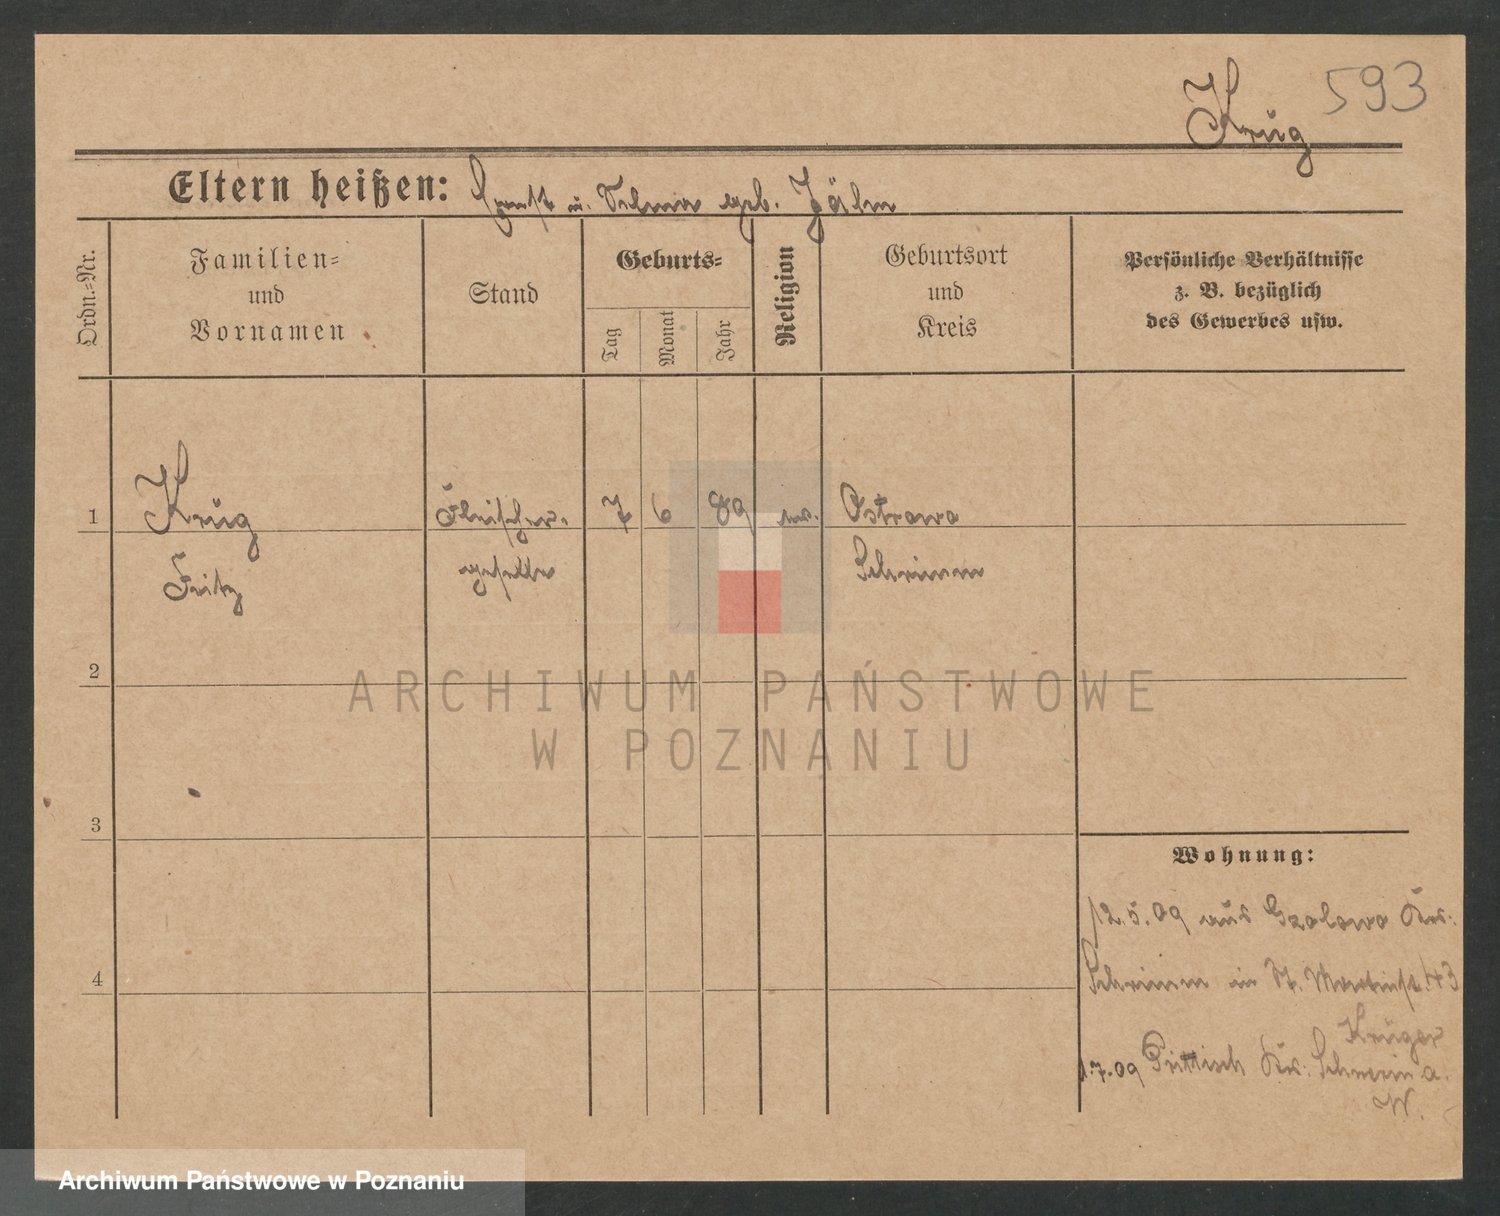 593
Krug
Eltern heißen: Ernst u. Selma geb. Jähn
Ordn.-Nr.
Familien-
und
Vornamen
Stand
Geburts-
Tag
Monat
Jahr
Religion
Geburtsort
und
Kreis
Persönliche Verhältnisse
z. B. bezüglich
des Gewerbes usw.
1 Krug Fleischer- 7 6 89 ev. Ostrowo
Fritz geselle Schrimm
2
ARCHIWUM PAŃSTWOWE
W POZNANIU
3
Wohnung:
12.5.09 aus Krs.
4
Schrimm in St. Martinst. 43
Krüger
1.7.09 Prittisch Kr. Schwerin a.
W.
Archiwum Państwowe w Poznaniu